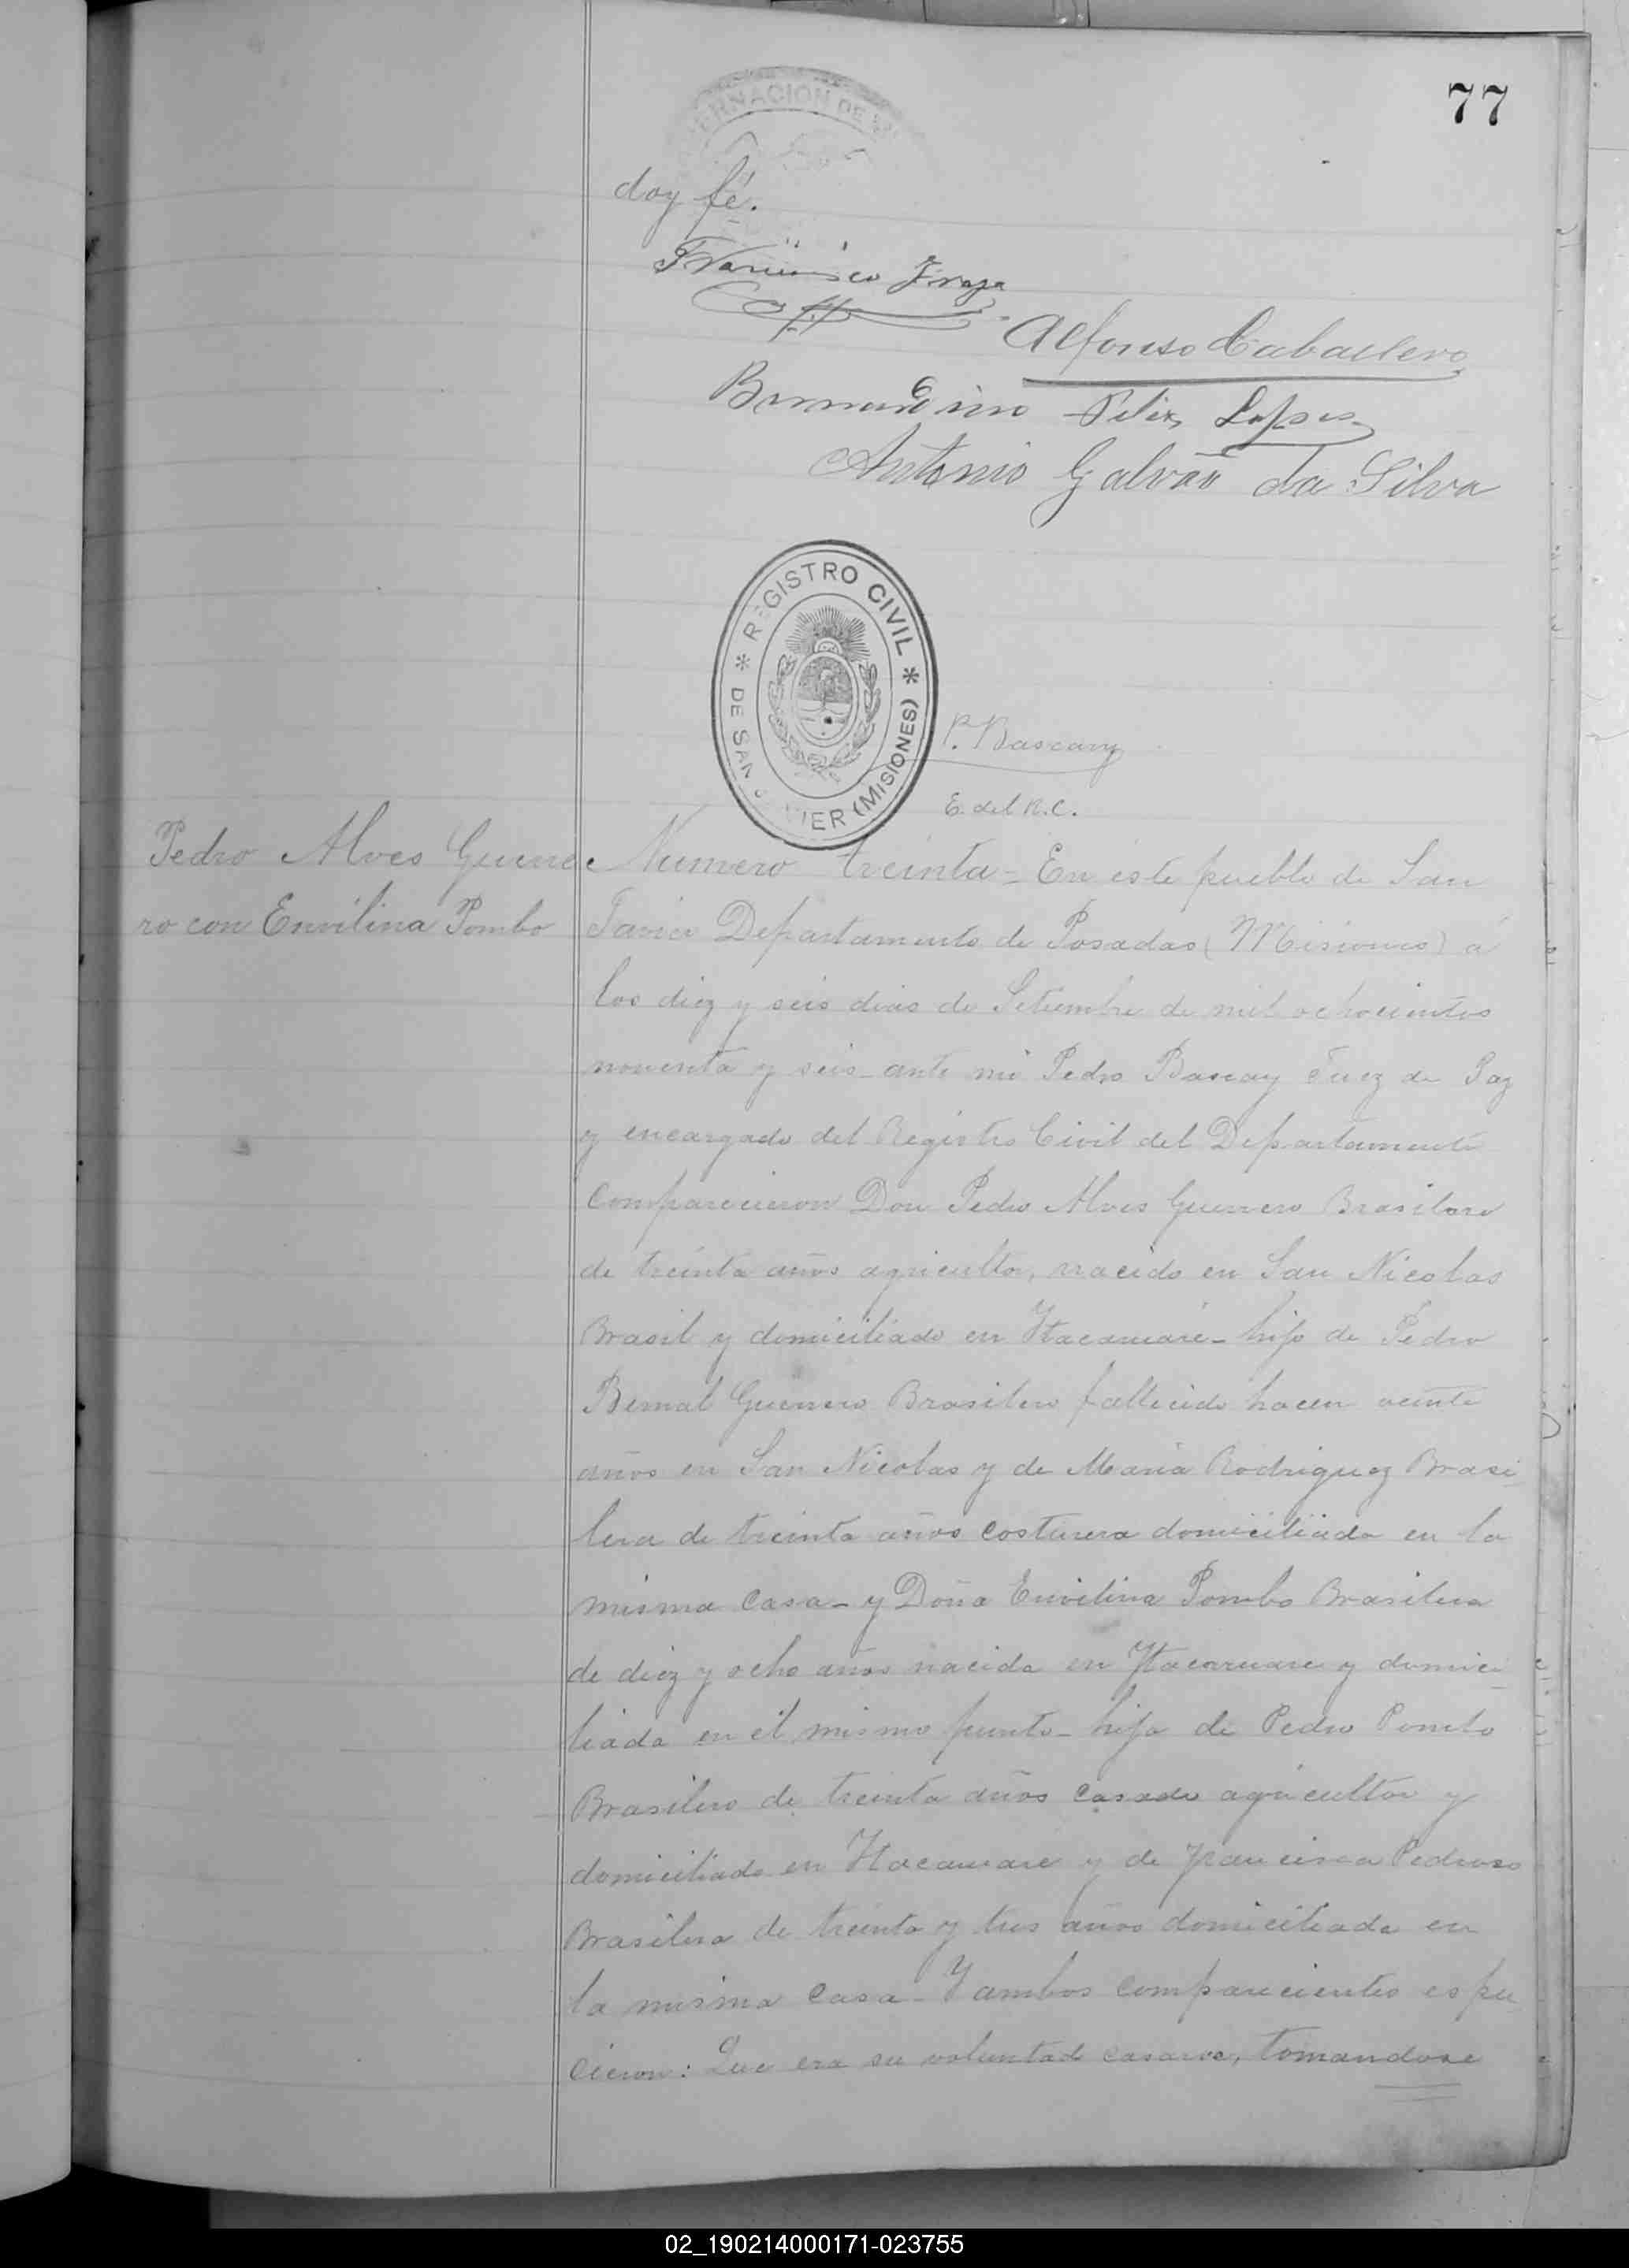 77
doy fé.
Francisco Fraga
Alfonso Caballero
Bernardino Felix Lopes
Antonio Galvão da Silva
REGISTRO CIVIL
DE SAN JAVIER (MISIONES)
P. Bascary
E. del R.C.
Pedro Alves Guerre
ro con Envilina Pombo
Numero treinta = En este pueblo de San
Javier Departamento de Posadas (Misiones) á
los diez y seis dias de Setiembre de mil ochocientos
noventa y seis ante mi Pedro Bascary Juez de Paz
y encargado del Registro Civil del Departamento
Comparecieron Don Pedro Alves Guerrero Brasilero
de treinta años agricultor, nacido en San Nicolas
Brasil y domiciliado en Itacaruaré - hijo de Pedro
Bernal Guerrero Brasilero fallecido hacen veinte
años en San Nicolas y de Maria Rodriguez Brasi
lera de treinta años costurera domiciliada en la
misma casa - y Doña Envilina Pombo Brasilera
de diez y ocho años nacida en Itacaruare y domici
liada en el mismo punto - hija de Pedro Pombo
Brasilero de treinta años casado agricultor y
domiciliado en Itacaruare y de Francisca Pedroso
Brasilera de treinta y tres años domiciliada en
la misma casa - Y ambos comparecientes espu
cieron: Que era su voluntad casarse, tomandose
02_190214000171-023755